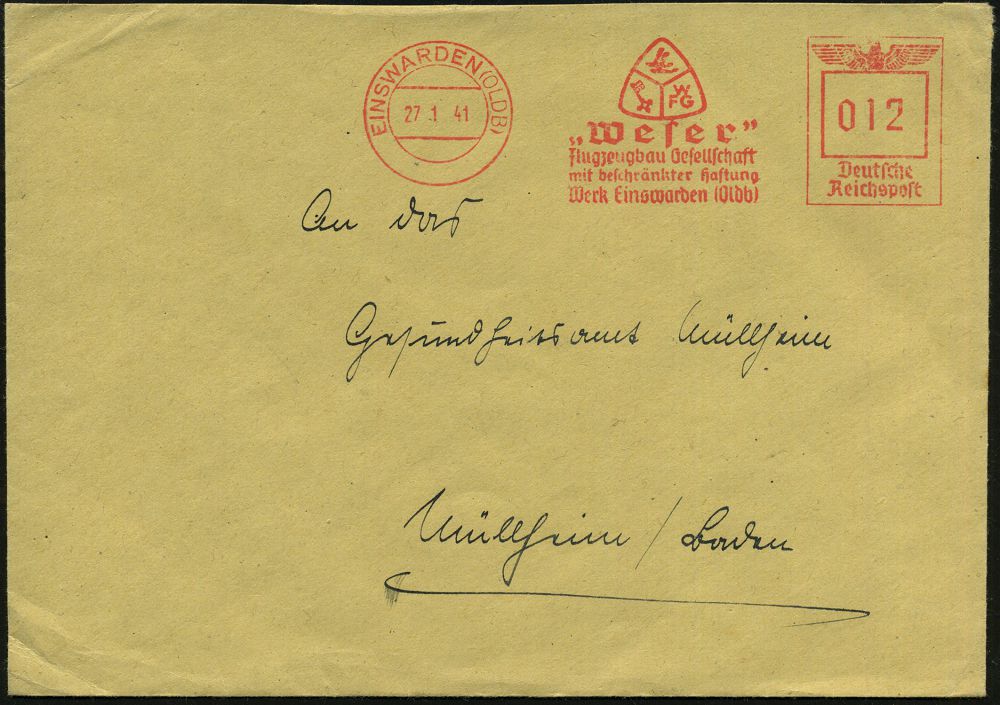 EINSWARDEN (OLDB)
27.1 41
WFG
„Weser"
Flugzeugbau Gesellschaft
mit beschränkter Haftung
Werk Einswarden (Oldb)
012
Deutsche
Reichspost
An das
Gesundheitsamt Müllheim
Müllheim / Baden